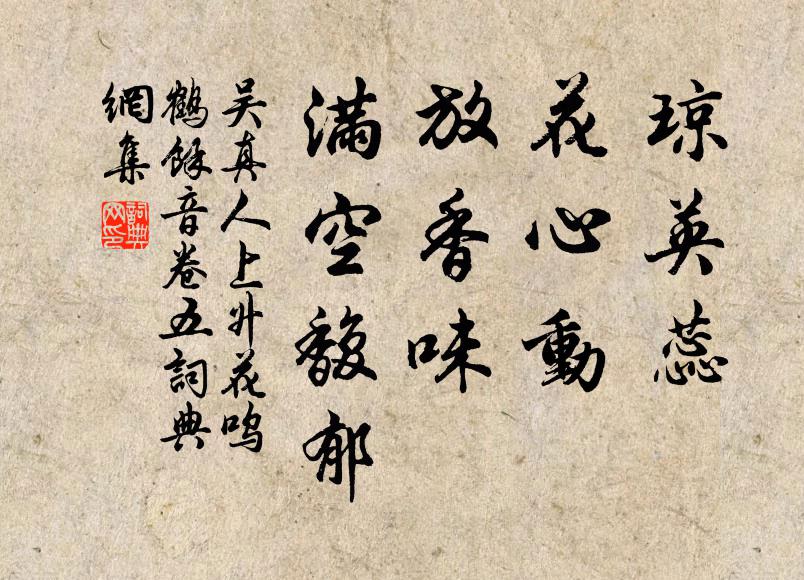 琼英蕊
花心動
放香味
满空馥郁
吴真人上升花鸣
鹤餘音卷五詞典
網集
詞典网印